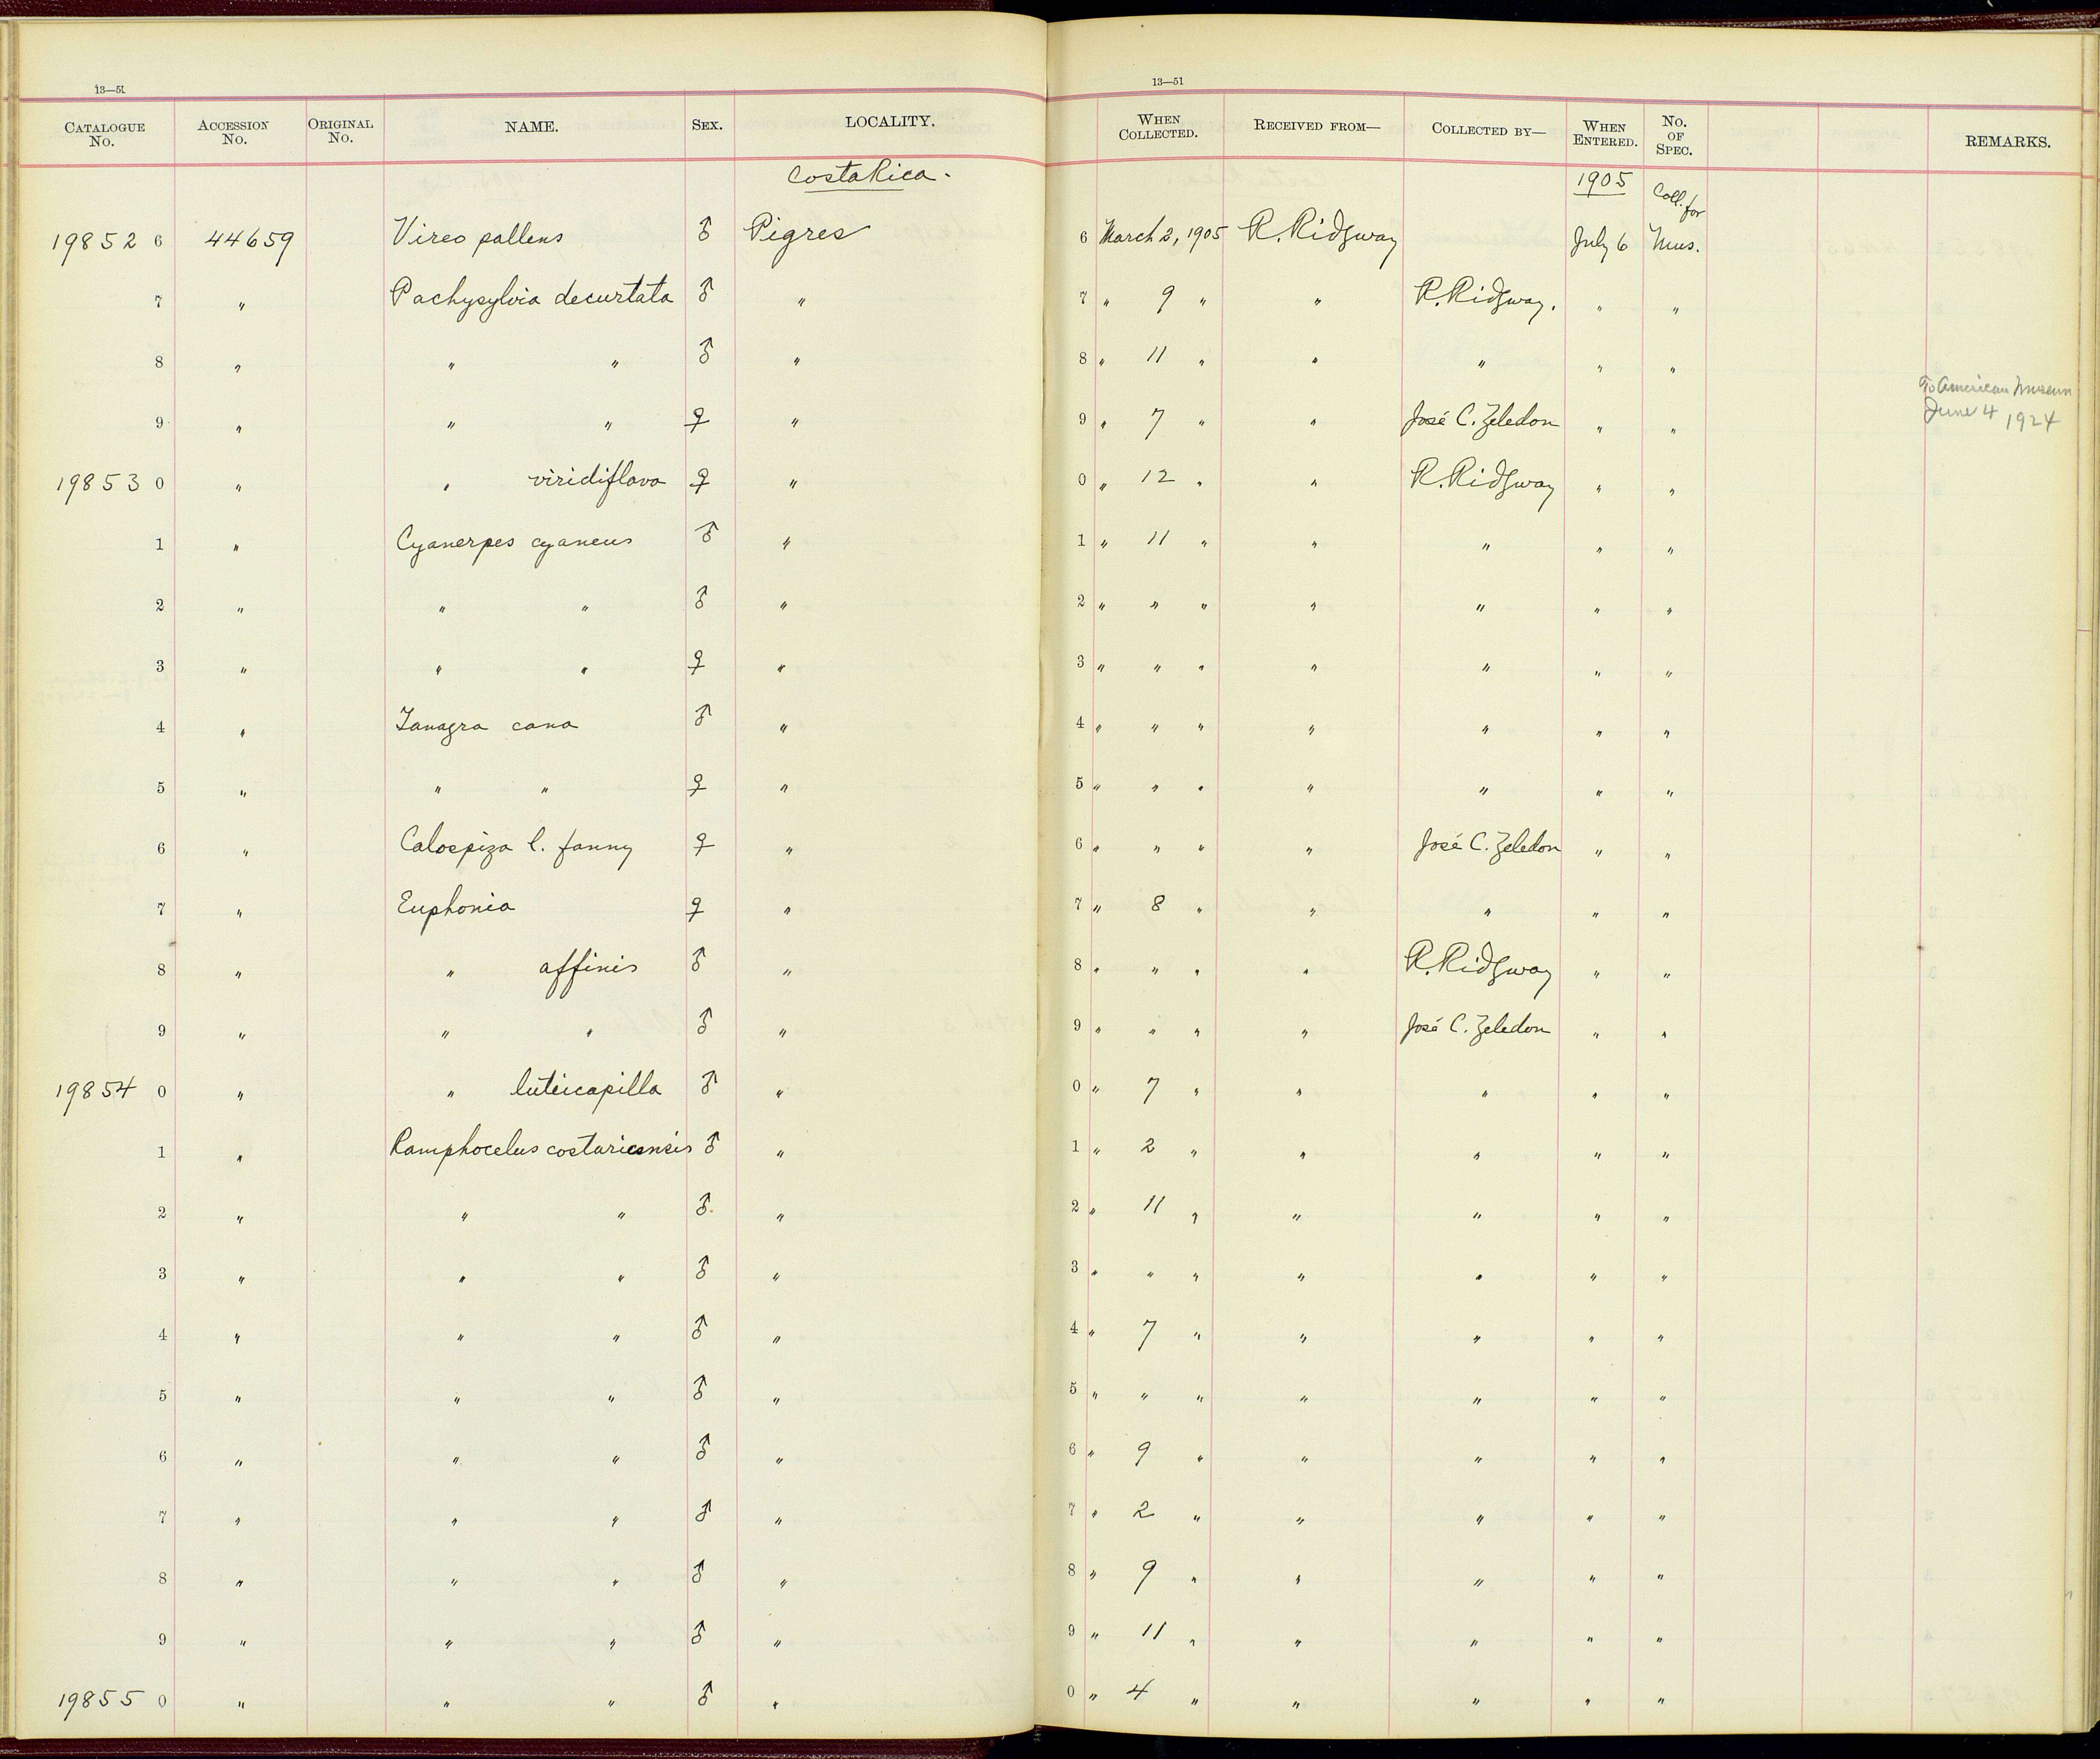 13—51
13—51
CATALOGUE No. ACCESSION No. ORIGINAL No. NAME. SEX. LOCALITY. WHEN COLLECTED. RECEIVED FROM— COLLECTED BY— WHEN ENTERED. No. OF SPEC. REMARKS.
Costa Rica. 1905 Coll. for
19852 6 44659 Vireo pallens ♂ Pigres 6 March 2, 1905 R. Ridgway July 6 Mus.
7 " Pachysylvia decurtata ♂ " 7 " 9 " " R. Ridgway. " "
8 " " " ♂ " 8 " 11 " " " " "
9 " " " ♀ " 9 " 7 " " José C. Zeledon " " To American Museum June 4 1924
19853 0 " " viridiflava ♀ " 0 " 12 " " R. Ridgway " "
1 " Cyanerpes cyaneus ♂ " 1 " 11 " " " " "
2 " " " ♂ " 2 " " " " " " "
3 " " " ♀ " 3 " " " " " " "
4 " Tanagra cana ♂ " 4 " " " " " " "
5 " " " ♀ " 5 " " " " " " "
6 " Calospiza l. fanny ♀ " 6 " " " " José C. Zeledon " "
7 " Euphonia ♀ " 7 " 8 " " " " "
8 " " affinis ♂ " 8 " " " " R. Ridgway " "
9 " " " ♂ " 9 " " " " José C. Zeledon " "
19854 0 " " luteicapilla ♂ " 0 " 7 " " " " "
1 " Ramphocelus costaricensis ♂ " 1 " 2 " " " " "
2 " " " ♂ " 2 " 11 " " " " "
3 " " " ♂ " 3 " " " " " " "
4 " " " ♂ " 4 " 7 " " " " "
5 " " " ♂ " 5 " " " " " " "
6 " " " ♂ " 6 " 9 " " " " "
7 " " " ♂ " 7 " 2 " " " " "
8 " " " ♂ " 8 " 9 " " " " "
9 " " " ♂ " 9 " 11 " " " " "
19855 0 " " " ♂ " 0 " 4 " " " " "